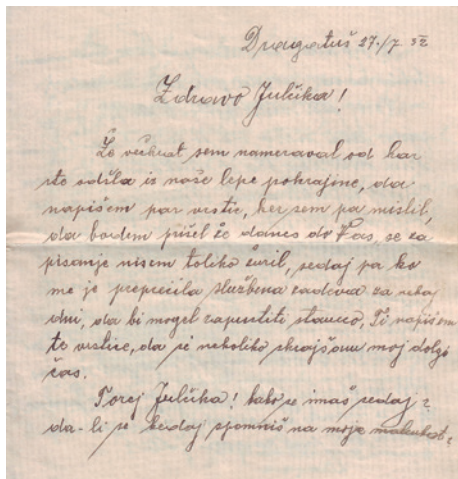 Dragatuš 27./7. 52
Zdravo Julčka!
Že večkrat sem nameraval od kar
ste odšla iz naše lepe pokrajine, da
napišem par vrstic, ker sem pa mislil,
da bodem prišel že danes do Vas, se za
pisanje nisem toliko žuril, sedaj pa ko
me je preprečila službena zadeva za nekaj
dni, da bi mogel zapustiti stanico, Ti napišem
te vrstice, da si nekoliko skrajšam moj dolgi
čas.
Torej Julčka! kako se imaš sedaj?
da-li se kedaj spomniš na moja malenkost?